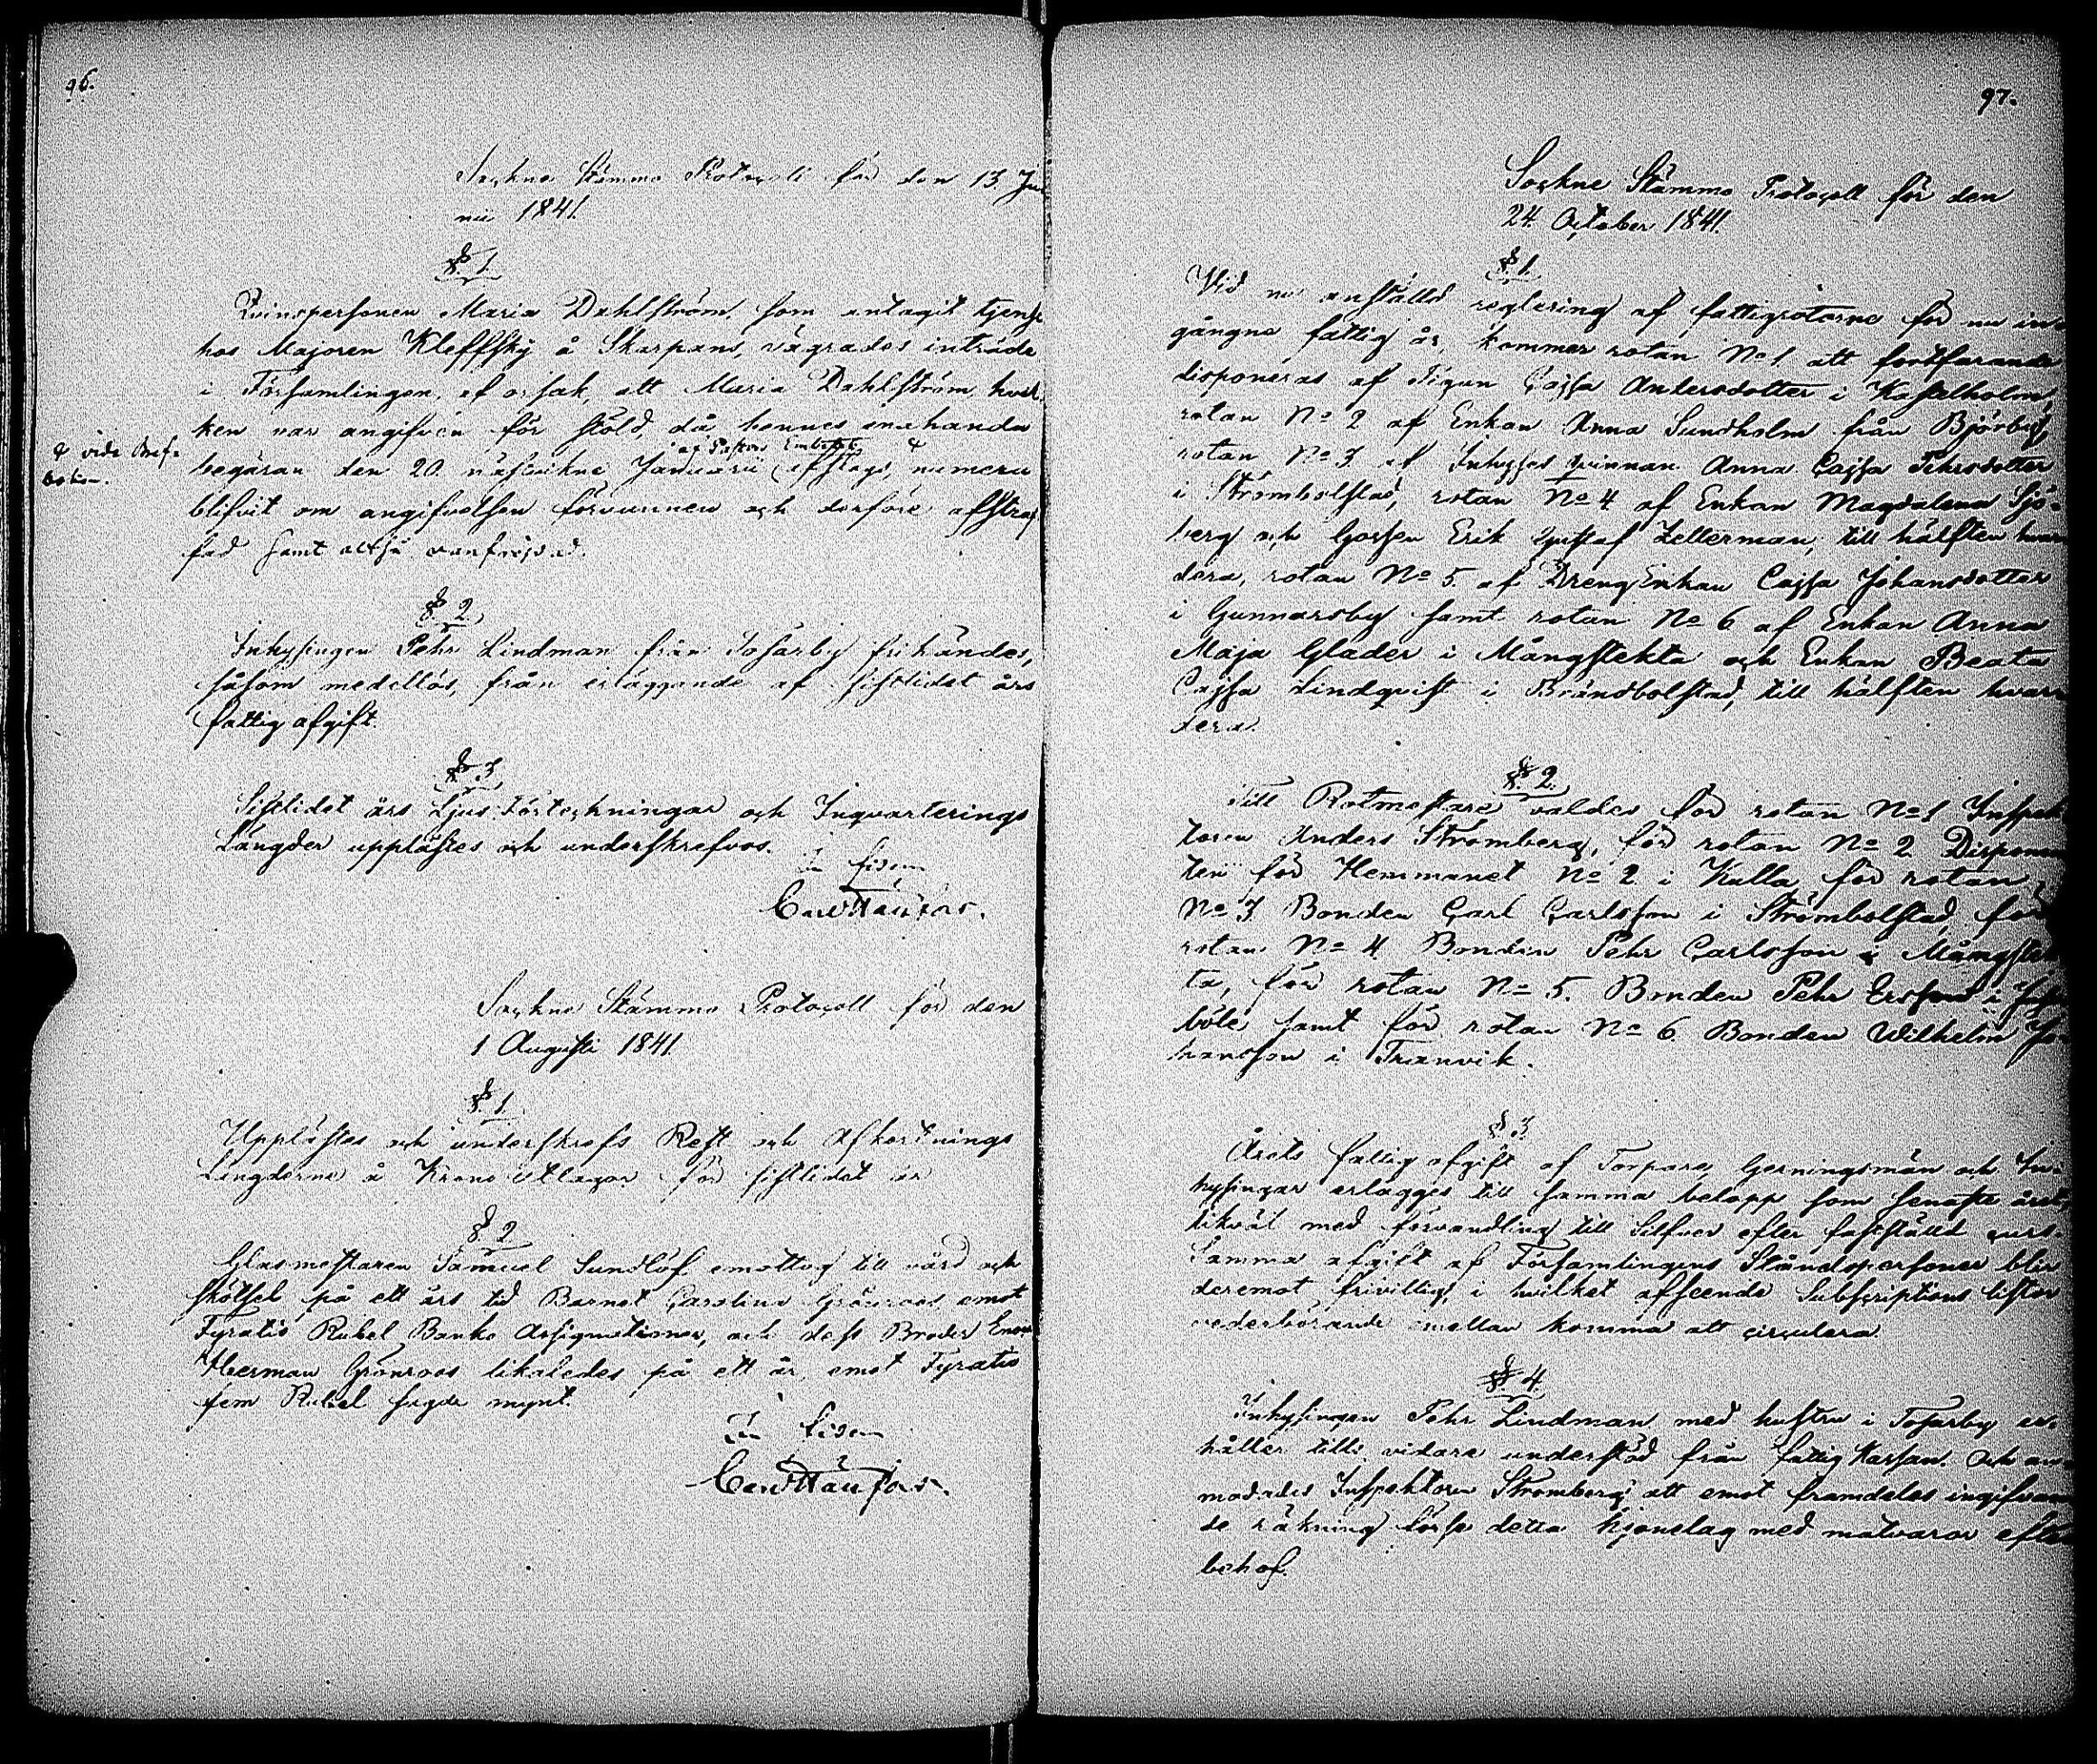 96.
Sockne Stämmo Protocoll för den 13 Ju
nii 1841.
§. 1.
Qvinspersonen Maria Dahlström, som antagit tjenst
hos Majoren Kleffsky å Skarpans, vägrades inträde
i Församlingen, af orsak, att Maria Dahlström, hvil-
ken var angifven för stöld, då hennes
af Pastors Embetet
begäran den 20 Januarii afslogs, numera
vide Bref-
boken.
blifvit om angifvelsen förvunnen och derföre afstraf-
fad samt altså vanfräjdad.
§. 2.
Inhysingen Pehr Lindman från Tosarby frikändes,
såsom medellös, från erläggande af sistlidet års
fattig afgift.
§. 3
Sistlidet års Ljus Förteckningar och Inqvarterings
Längder upplästes och underskrefvos.
In fidem
Sockne Stämmo Protocoll för den
1 Augusti 1841.
§. 1.
Upplästes och underskrefs Rest och Afkortnings
Längderna å Krono Utlagor för sistlidet år
§. 2
Glasmestaren Samuel Sundlöf emottog till vård och
skötsel på ett års tid Barnet Carolina Grönroos emot
Fyratio Rubel Banko Assignationer, och dess Broder
Herman Grönroos likaledes på ett år, emot Fyratio
fem Rubel sagde mynt.
In fidem
97.
Sockne Stämmo Protocoll för den
24. October 1841.
§. 1.
Vid nu anställd reglering af fattigrotarne för nu in-
gångne fattig år, kommer rotan No 1. att fortfarande
disponeras af Pigan Cajsa Andersdotter i Kastelholm,
rotan No 2 af Enkan Anna Sundholm från Björby,
rotan No 3 af Inhyses qvinnan Anna Cajsa Pehrsdotter
i Strömbolstad, rotan No 4 af Enkan Magdalena Sjö-
berg och Gossen Erik Gustaf Zetterman, till hälften hvar-
dera, rotan No 5 af Dreng Enkan Cajsa Johansdotter
i Gunnarsby samt rotan No 6 af Enkan Anna
Maja Glader i Mångstekta och Enkan Beata
Cajsa Lindqvist i Brändbolstad, till hälften hvar-
dera.
§. 2.
Till Rotmestare valdes för rotan No 1 Inspek-
toren Anders Strömberg, för rotan No 2 Disponen-
ten för Hemmanet No 2 i Kulla, för rotan
No 3 Bonden Carl Carlsson i Strömbolstad, för
rotan No 4 Bonden Pehr Carlsson i Mångstek-
ta, för rotan No 5. Bonden Pehr Ersson i
böle samt för rotan No 6 Bonden Wilhelm Jo-
hansson i Tranvik.
§. 3
Årets fattig afgift af Torpare, Gerningsmän och In-
hysingar erlägges till samma belopp som senaste året,
likväl med förvandling till Silfver efter fastställd curs.
Samma afgift af Församlingens Ståndspersoner blir
deremot frivillig, i hvilket afseende Subscriptions listor
vederbörande emellan komma att circulera.
§. 4.
Inhysingen Pehr Lindman med hustru i Tosarby er-
håller tills vidare understöd från fattig Kassan. Och an-
modades Inspektoren Strömberg att emot framdeles ingifvan-
de räkning förse detta hjonelag med matvaror efter
behof.